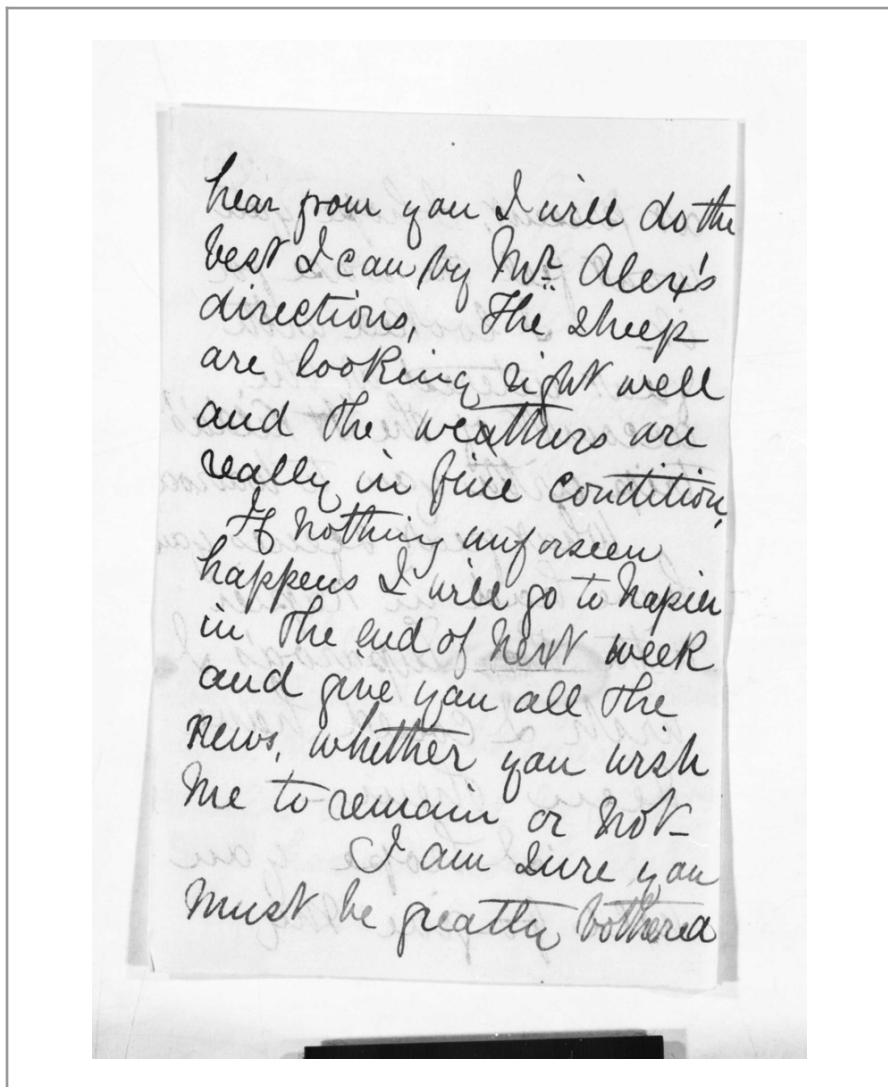 hear from you I will do the
best I can by Mr. Alex's
directions, The sheep
are looking right well
and the weathers are
really in fine condition,
If nothing unforseen
happens I will go to Napier
in the end of next week
and give you all the
news, whether you wish
me to remain or not—
I am sure you
must be greatly bothered